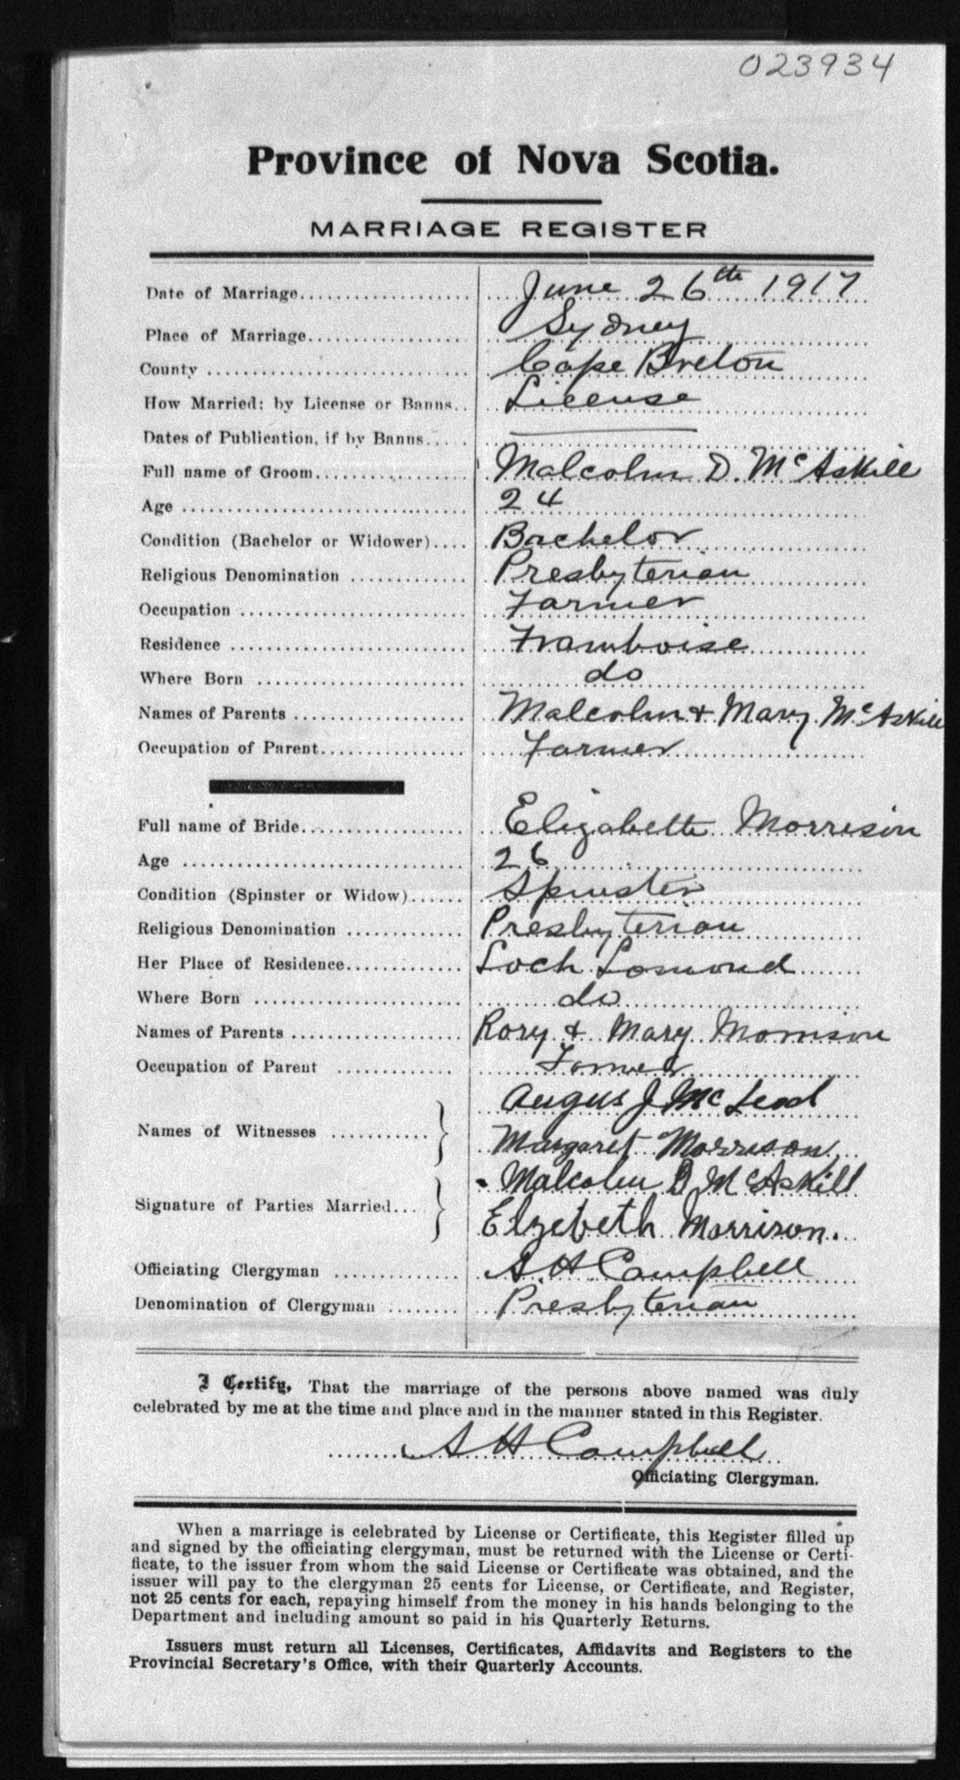 023934
Province of Nova Scotia.
MARRIAGE REGISTER
Date of Marriage.................... June 26th 1917
Place of Marriage................... Sydney
County ............................. Cape Breton
How Married: by License or Banns.. License
Dates of Publication, if by Banns.....
Full name of Groom................. Malcolm D. McAskill
Age ............................. 24
Condition (Bachelor or Widower).... Bachelor
Religious Denomination ............. Presbyterian
Occupation ......................... Farmer
Residence .......................... Framboise
Where Born ....................... do
Names of Parents ................... Malcolm & Mary McAskill
Occupation of Parent................ Farmer
Full name of Bride.................. Elizabeth Morrison
Age ............................... 26
Condition (Spinster or Widow)...... Spinster
Religious Denomination ............. Presbyterian
Her Place of Residence............. Loch Lomond
Where Born ........................ do
Names of Parents ................... Rory & Mary Morrison
Occupation of Parent ............. Farmer
Angus J McLeod
Names of Witnesses ...........
Margaret Morrison
Malcolm D McAskill
Signature of Parties Married...
Elzebeth Morrison.
Officiating Clergyman .............. A. H Campbell
Denomination of Clergyman ........ Presbyterian
I Certify, That the marriage of the persons above named was duly
celebrated by me at the time and place and in the manner stated in this Register.
A H Campbell
Officiating Clergyman.
When a marriage is celebrated by License or Certificate, this Register filled up
and signed by the officiating clergyman, must be returned with the License or Certi-
ficate, to the issuer from whom the said License or Certificate was obtained, and the
issuer will pay to the clergyman 25 cents for License, or Certificate, and Register,
not 25 cents for each, repaying himself from the money in his hands belonging to the
Department and including amount so paid in his Quarterly Returns.
Issuers must return all Licenses, Certificates, Affidavits and Registers to the
Provincial Secretary's Office, with their Quarterly Accounts.